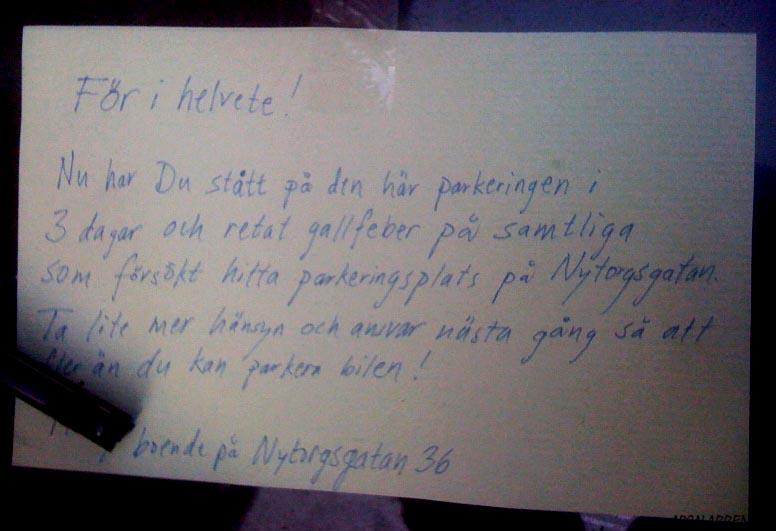 För i helvete!
Nu har Du stått på den här parkeringen i
3 dagar och retat gallfeber på samtliga
som försökt hitta parkeringsplats på Nytorgsgatan.
Ta lite mer hänsyn och ansvar nästa gång så att
fler än du kan parkera bilen!
boende på Nytorgsgatan 36